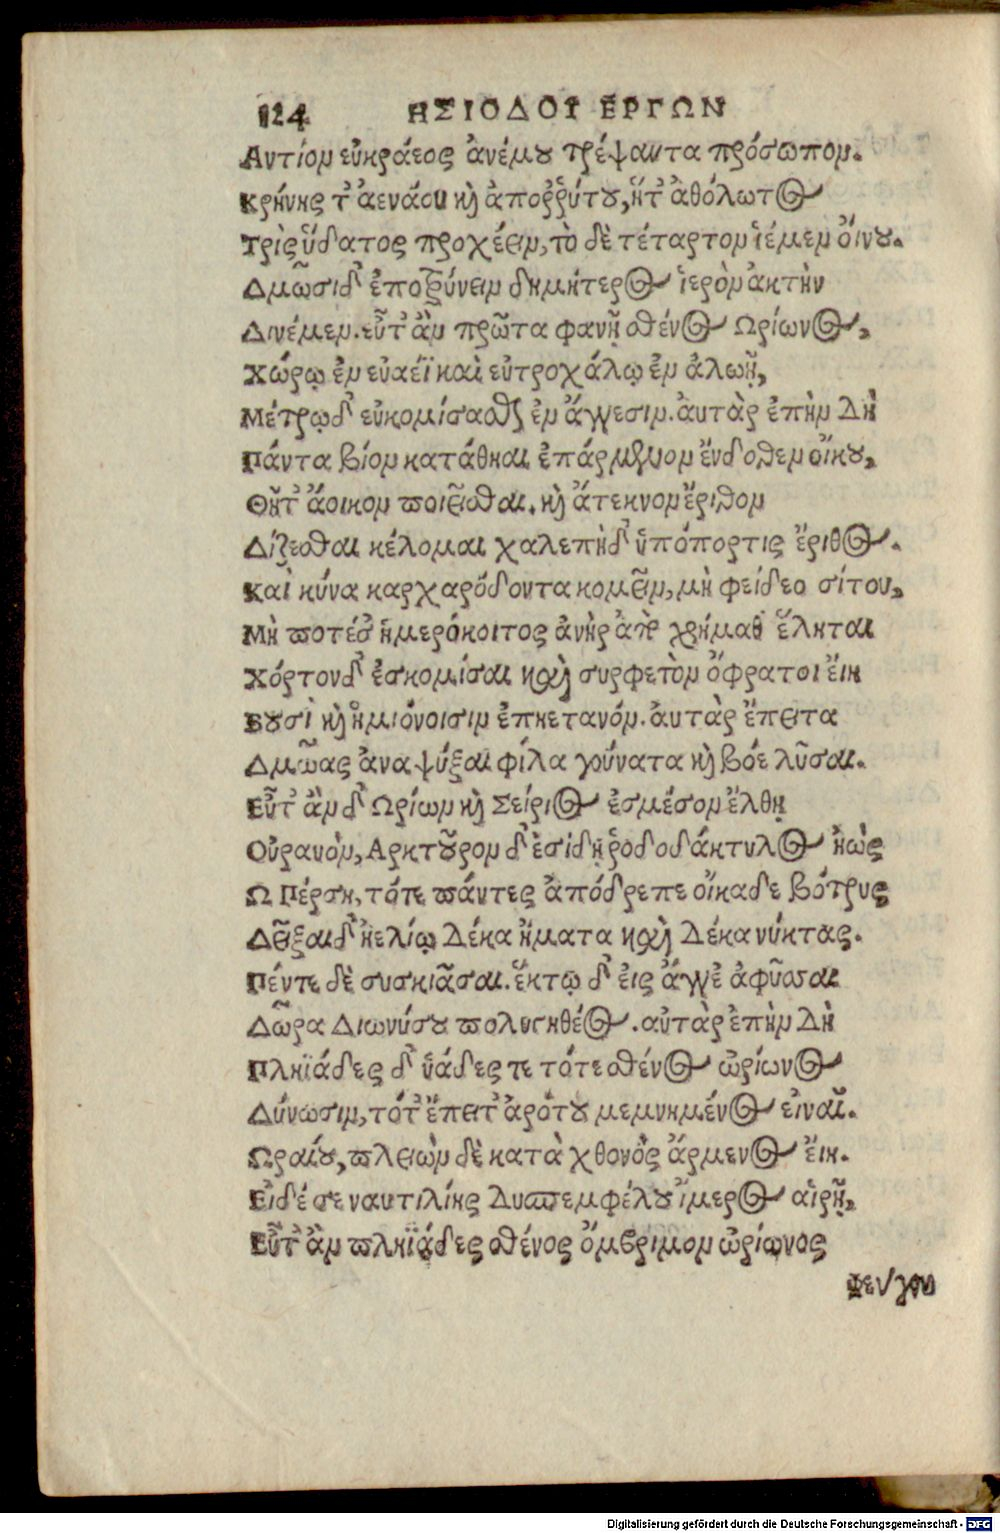 124 ΗΣΙΟΔΟΥ ΕΡΓΩΝ
Αντίον εὐκράεος ἀνέμου τρέψαντα πρόσωπον.
Κρήνης τ' ἀενάου καὶ ἀποῤῥύτου, ἥτ' ἀθόλωτος
Τρὶς ὕδατος προχέειν, τὸ δὲ τέταρτον ἱέμεν οἴνου.
Δμωσὶ δ' ἐποτξύνειν δημήτερος ἱερὸν ἀκτὴν
Δινέμεν. εὖτ' ἂν πρῶτα φανῇ σθένος Ωρίωνος,
Χώρῳ ἐν εὐαέϊ καὶ εὐτροχάλῳ ἐν ἀλωῇ,
Μέτρῳ δ' εὐκομίσασθαι ἐν ἄγγεσιν. ἀυτὰρ ἐπὴν Δὴ
Πάντα βίον κατάθηαι ἐπάρμενον ἔνδοθεν οἴκου,
Θῆτ' ἄοικον ποιεῖσθαι. καὶ ἄτεκνον ἔριθον
Δίζεσθαι κέλομαι χαλεπὴ δ' ὑπόπορτις ἔριθος.
Καὶ κύνα καρχαρόδοντα κομεῖν, μὴ φείδεο σίτου,
Μὴ ποτέ σ' ἡμερόκοιτος ἀνὴρ ἀπὸ χρήμαθ' ἕληται
Χόρτον δ' ἐσκομίσαι καὶ συρφετὸν ὄφρα τοι ἔιη
Βουσὶ καὶ ἡμιόνοισιν ἐπηετανόν. ἀυτὰρ ἔπειτα
Δμῶας ἀναψύξαι φίλα γούνατα καὶ βόε λῦσαι.
Εὖτ' ἂν δ' Ωρίων καὶ Σείριος ἐσμέσον ἔλθῃ
Οὐρανὸν, Αρκτοῦρον δ' ἐσίδῃ ῥοδοδάκτυλος ἠὼς
Ω Πέρση, τότε πάντες ἀπόδρεπε οἴκαδε βότρυς
Δεῖξαι δ' ἠελίῳ Δέκα ἤματα καὶ Δέκα νύκτας.
Πέντε δὲ συσκιᾶσαι. ἕκτῳ δ' ἐις ἄγγε' ἀφῦσσαι
Δῶρα Διωνύσου πολυγηθέος. αὐτὰρ ἐπὴν Δὴ
Πληϊάδες δ' ὑάδες τε τότε σθένος ὠρίωνος
Δύνωσιν, τότ' ἔπειτ' ἀρότου μεμνημένος εἰναῖ.
Ωραίου, πλειὼν δὲ κατὰ χθονὸς ἄρμενος ἔιη.
Εἰδέ σε ναυτιλίης Δυσπεμφέλου ἵμερος αἱρῇ,
Εὖτ' ἂν πληϊάδες σθένος ὄμβριμον ὠρίωνος
Φεύγου
Digitalisierung gefördert durch die Deutsche Forschungsgemeinschaft - DFG